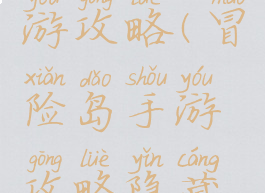 yóu gōng lüè mào
游攻略(冒
xiǎn dǎo shǒu yóu
险岛手游
gōng lüè yǐn cáng
攻略隐藏